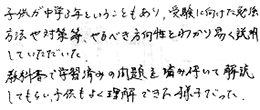 子供が中学3年ということもあり、受験に向けた勉強
方法や対策等、やるべき方向性をわかり易く説明
していただいた。
教科書で学習済みの問題を噛み砕いて解説
してもらい子供もよく理解できた様子だった。